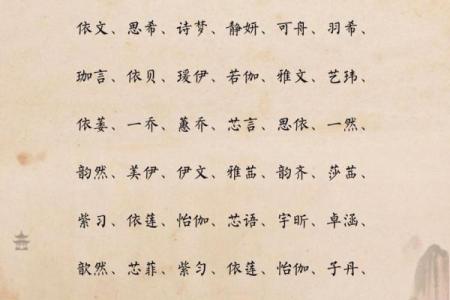 依文、思希、诗梦、静妍、可舟、羽希、
珈言、依贝、瑗伊、若伽、雅文、艺玮、
依萎、一乔、蕙乔、芯言、思依、一然、
韵然、美伊、伊文、雅茜、韵齐、莎茜、
紫习、依莲、怡伽、芯语、宇昕、卓涵、
歆然、芯菲、紫匀、依莲、怡伽、子丹、